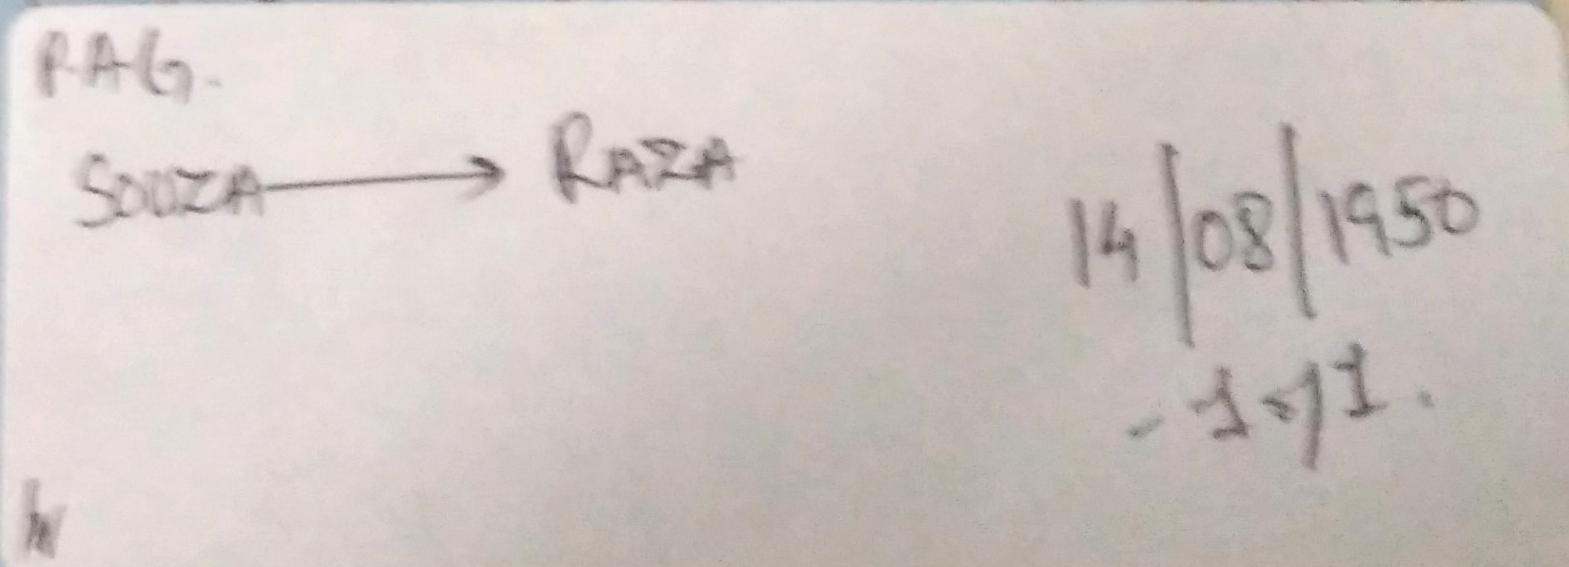 P.A.G.
SOUZA → RAZA
14/08/1950
- 1 of 1.